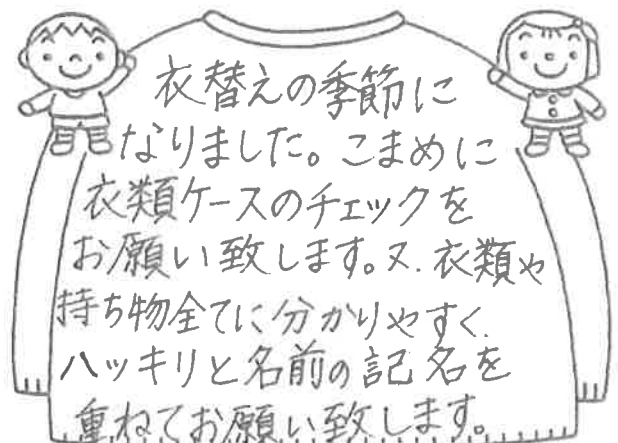 衣替えの季節に
なりました。こまめに
衣類ケースのチェックを
お願い致します。又、衣類や
持ち物全てに分かりやすく、
ハッキリと名前の記名を
重ねてお願い致します。